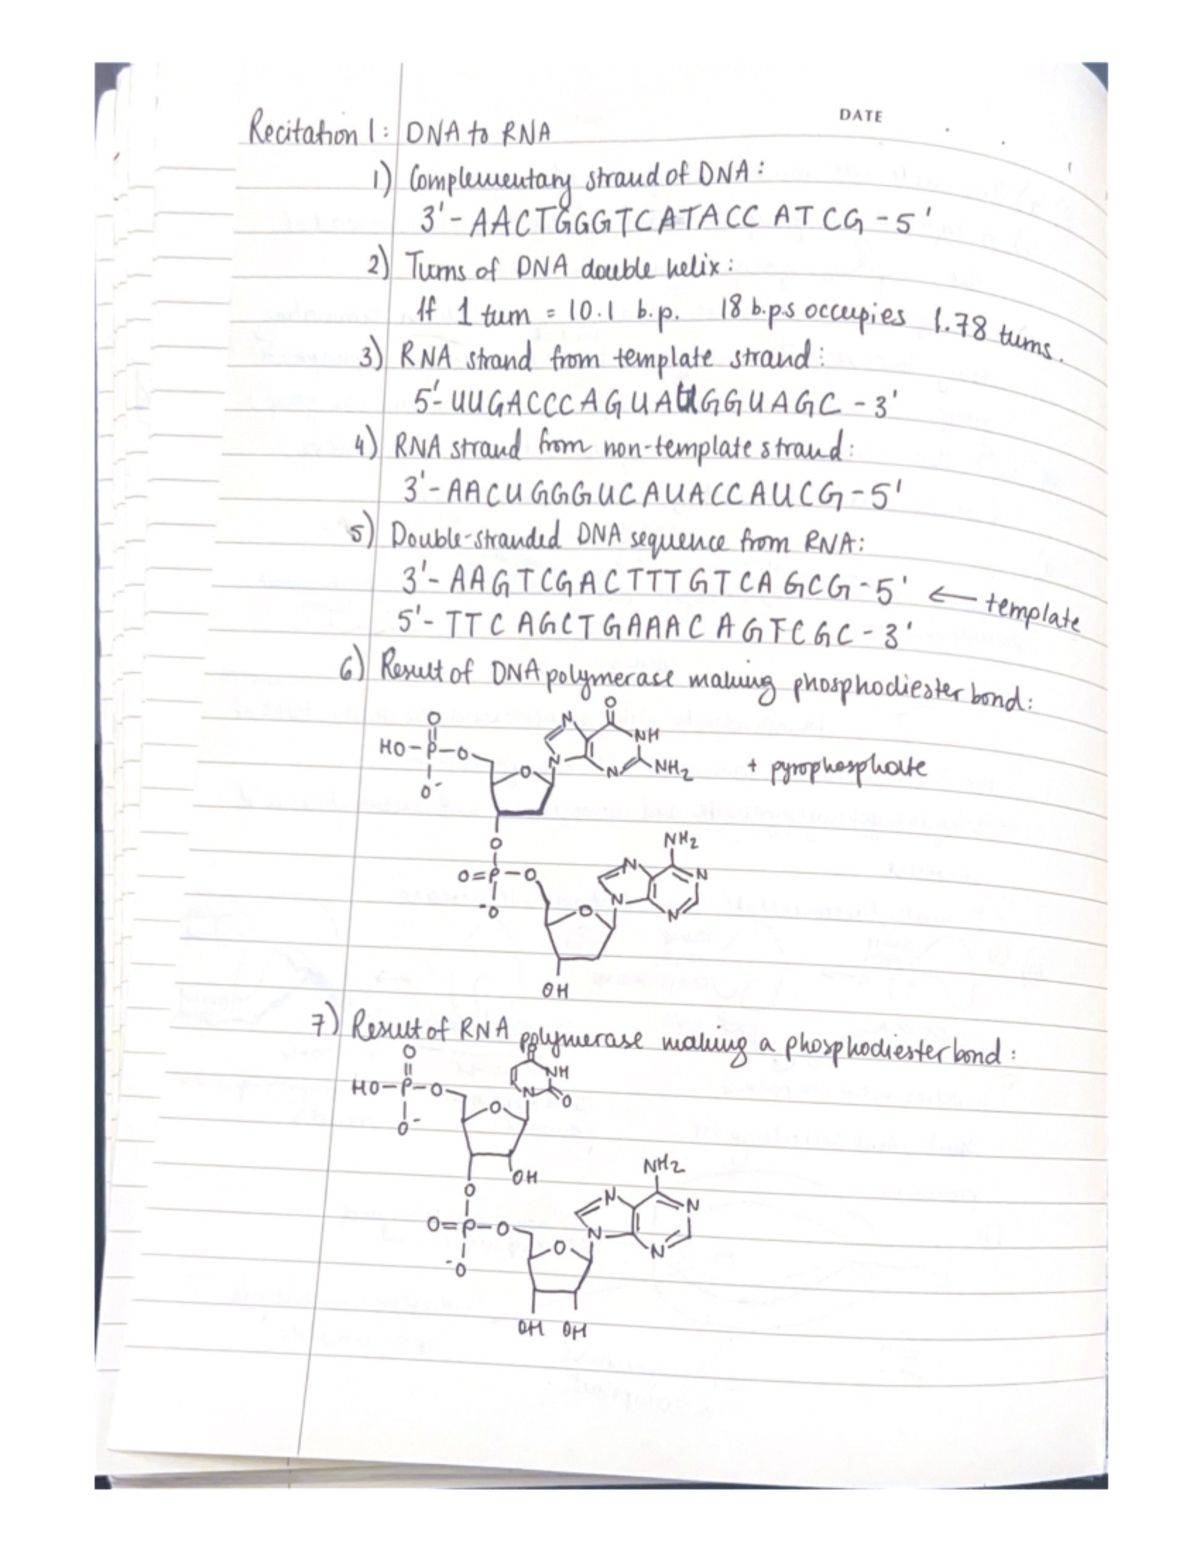 DATE
Recitation 1: DNA to RNA
1) Complementary strand of DNA:
3'- AACTGGGTCATACC ATCG - 5'
2) Turns of DNA double helix:
If 1 turn = 10.1 b.p. 18 b.ps occupies 1.78 turns.
3) RNA strand from template strand:
5'- UUGACCCAGUAUGGUAGC - 3'
4) RNA strand from non-template strand:
3'- AACUGGGUCAUACCAUCG - 5'
5) Double-stranded DNA sequence from RNA:
3'- AAGTCGACTTTGTCAGCG - 5' ← template
5'- TTCAGCTGAAACAGTCGC - 3'
6) Result of DNA polymerase making phosphodiester bond:
O
O
N
NH
HO-P-O
N
N
NH2
+ pyrophosphate
O
O-
O
NH2
O=P-O
N
N
-O
O
N
N
OH
7) Result of RNA polymerase making a phosphodiester bond:
O
O
NH
HO-P-O
N
O
O
O-
OH
NH2
O
N
N
O=P-O
N
N
O
-O
OH OH